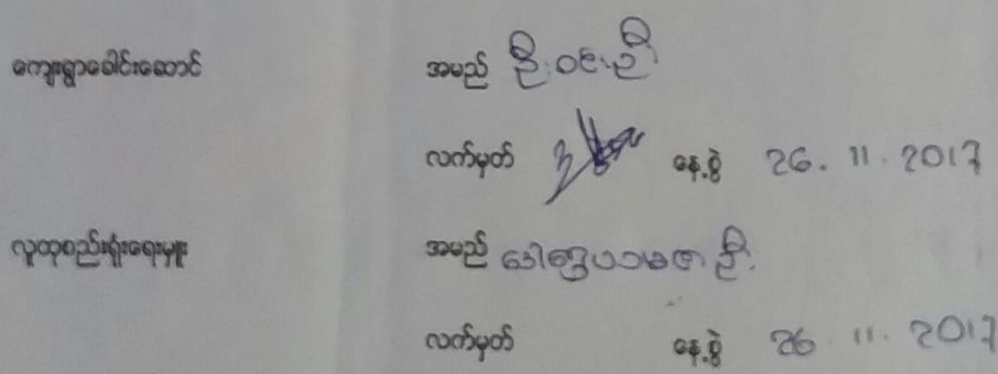 ကျေးရွာခေါင်းဆောင် အမည် ဦးဝင်းဦး
လက်မှတ် နေ့စွဲ 26.11.2017
လူထုစည်းရုံးရေးမှူး အမည် ဒေါ်
လက်မှတ် နေ့စွဲ 26 11.2017